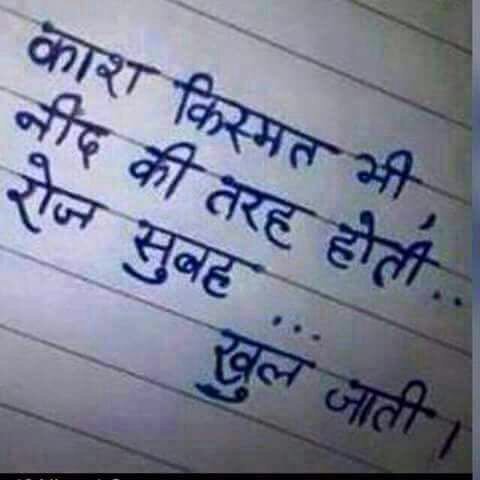 काश किस्मत भी,
नींद की तरह होती..
रोज सुबह ...
खुल जाती।